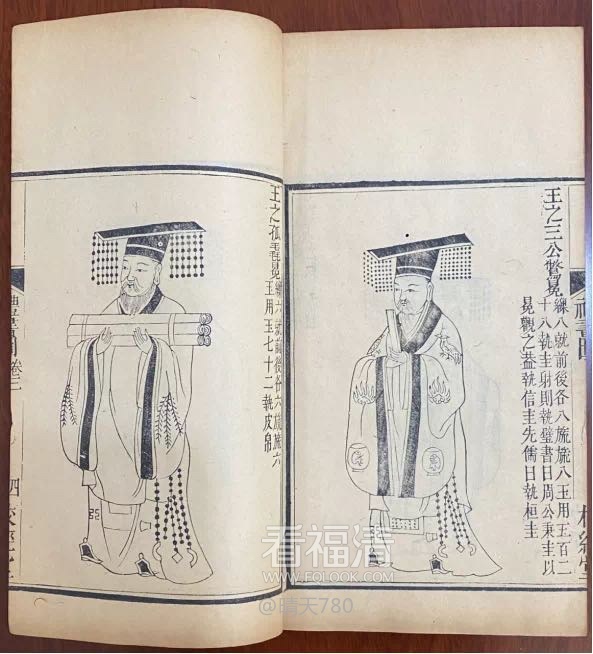 王之三公鷩冕
繅八就前後各八旒旒八玉用玉百二
十八執圭射則執璧書曰周公秉圭以
冕觀之葢執信圭先儒曰執桓圭
王之孤毳冕
繅六就前後各六旒旒六
玉用玉七十二執皮帛
看福清
WWW.FQLOOK.COM
@晴天780